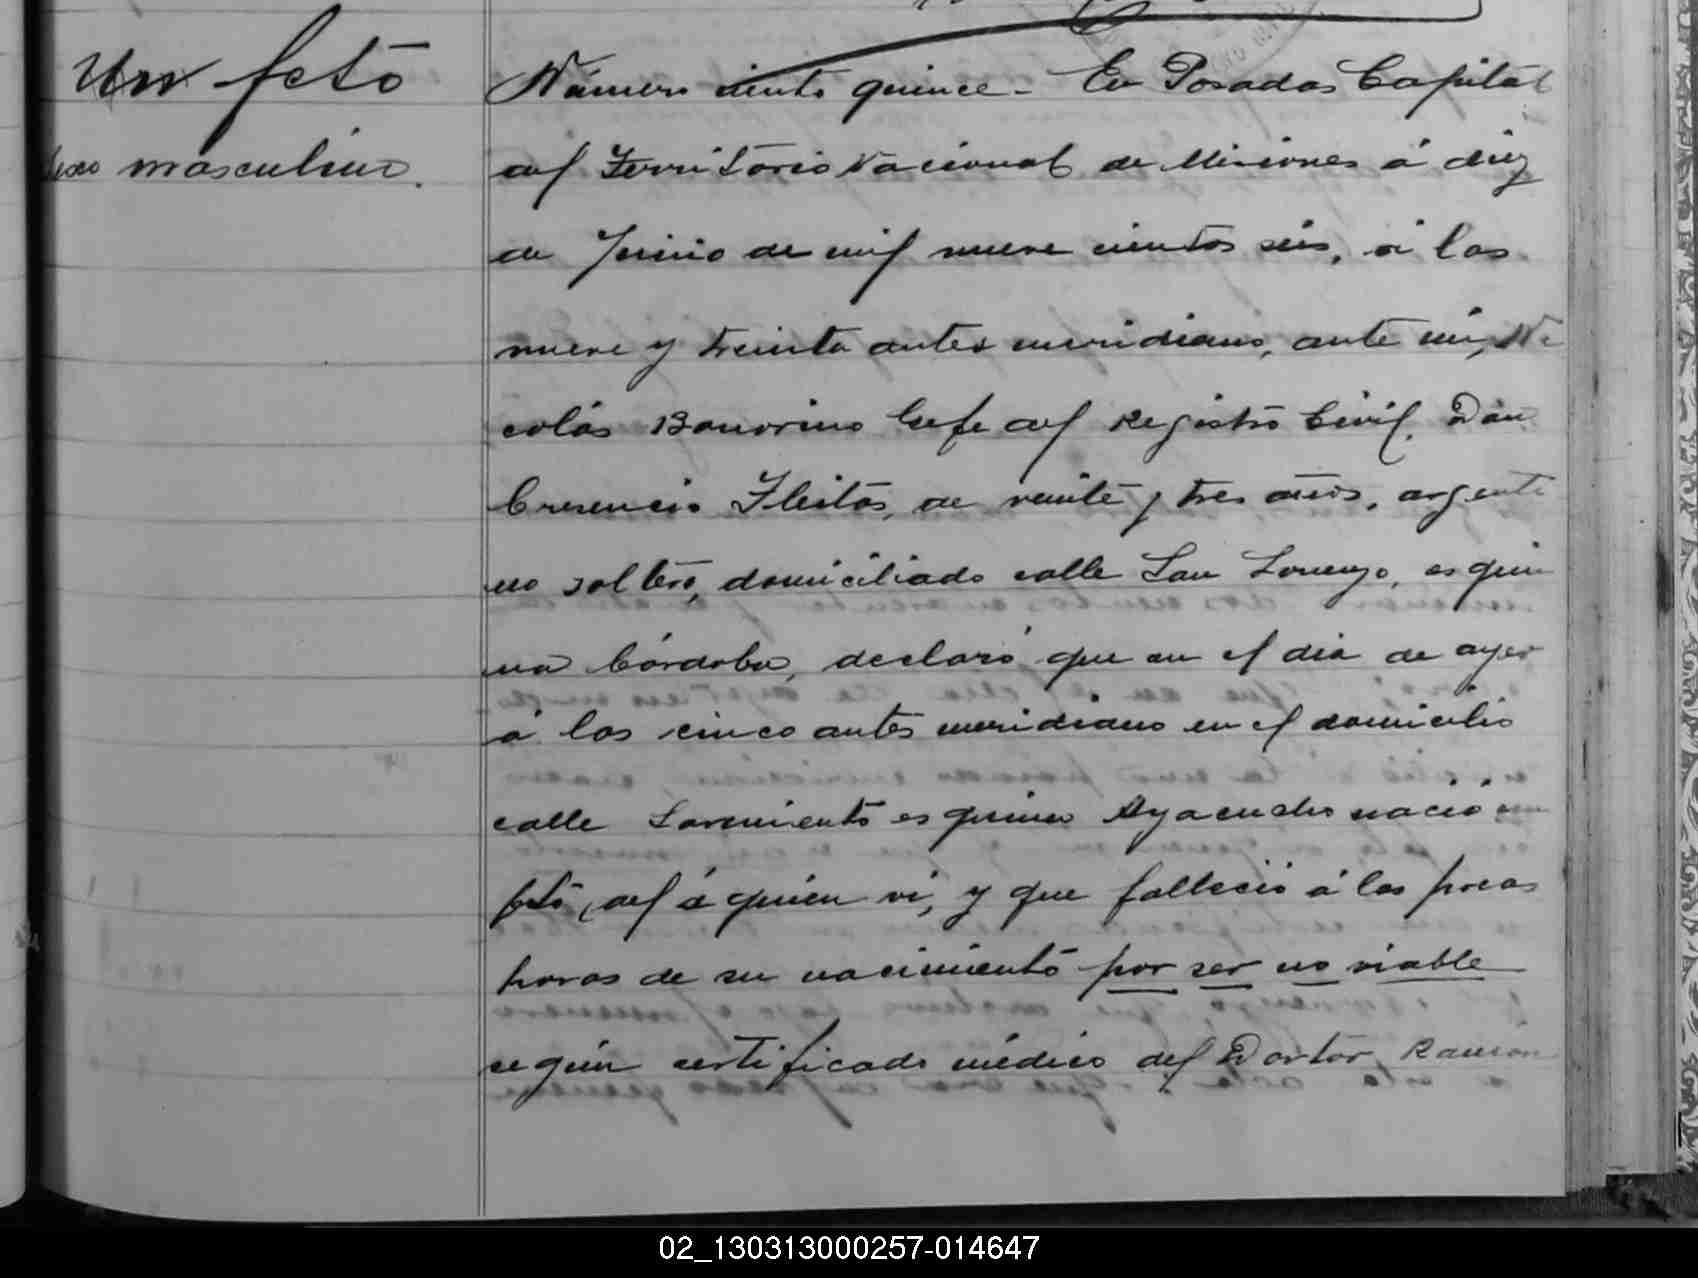 Un feto
sexo masculino.
Número ciento quince - En Posadas Capital
del Territorio Nacional de Misiones á diez
de Junio de mil nueve cientos seis, á las
nueve y treinta antes meridiano, ante mi, Ni
colás Bonorino Gefe del Registro Civil, Don
Cresencio Fleitas, de veinte y tres años, argenti
no soltero, domiciliado calle San Lorenzo, esqui
na Córdoba, declaró que en el dia de ayer
á las cinco antes meridiano en el domicilio
calle Sarmiento esquina Ayacucho nació un
feto, del á quien vi, y que falleció á las pocas
horas de su nacimiento por ser no viable
según certificado médico del Doctor Ramón
02_130313000257-014647